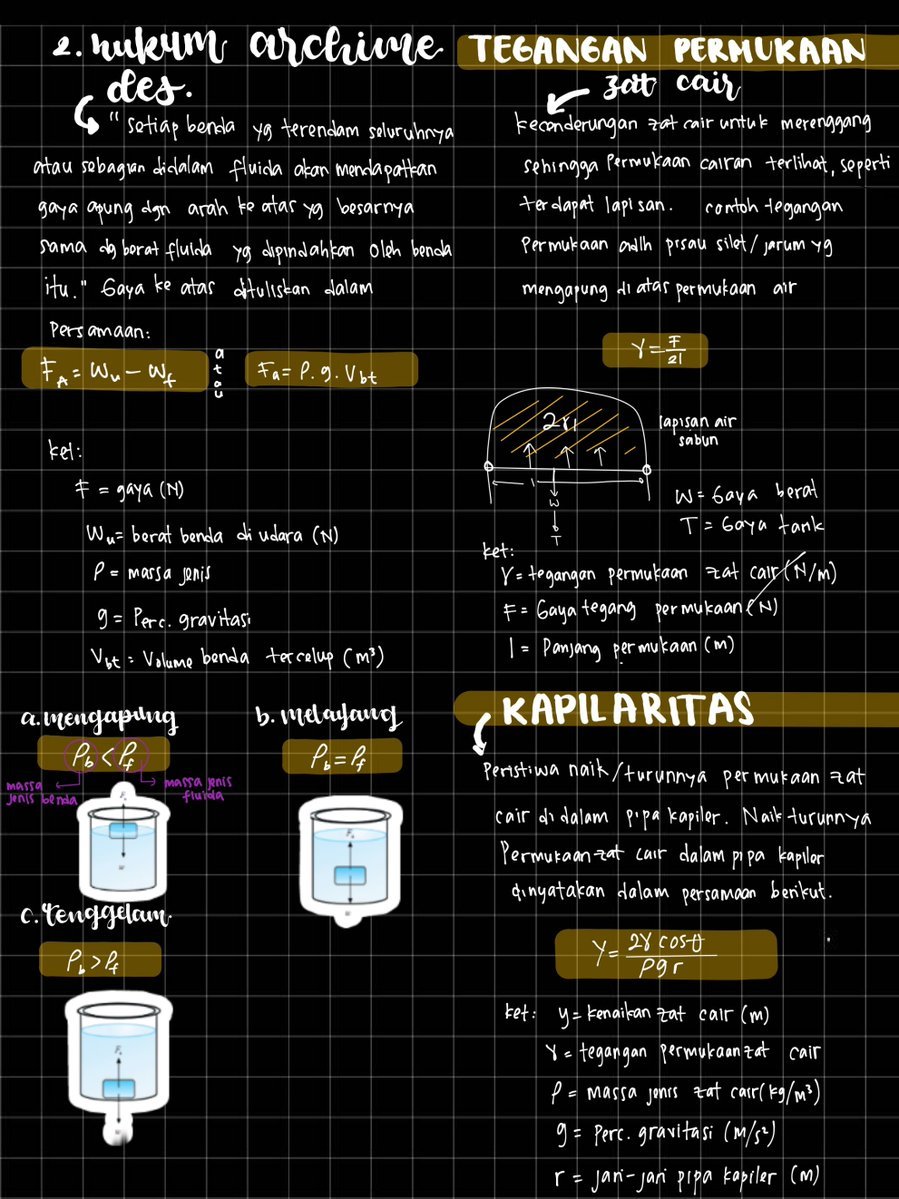 2. hukum archime
des.
"setiap benda yg terendam seluruhnya
atau sebagian didalam fluida akan mendapatkan
gaya apung dgn arah ke atas yg besarnya
sama dg berat fluida yg dipindahkan oleh benda
itu." Gaya ke atas dituliskan dalam
Persamaan:
F_A = W_u - W_f
atau
F_a = ρ. g. V_bt
ket:
F = gaya (N)
W_u = berat benda di udara (N)
ρ = massa jenis
g = Perc. gravitasi
V_bt = Volume benda tercelup (m³)
a. mengapung
ρ_b < ρ_f
massa
jenis benda
massa jenis
fluida
b. melayang
ρ_b = ρ_f
c. Tenggelam.
ρ_b > ρ_f
TEGANGAN PERMUKAAN
zat cair
kecenderungan zat cair untuk merenggang
sehingga permukaan cairan terlihat, seperti
terdapat lapisan. contoh tegangan
Permukaan adlh pisau silet/jarum yg
mengapung di atas permukaan air
γ = F/2l
lapisan air
sabun
l
W
T
W = Gaya berat
T = Gaya tank
ket:
γ = tegangan permukaan zat cair (N/m)
F = Gaya tegang permukaan (N)
l = Panjang permukaan (m)
KAPILARITAS
Peristiwa naik/turunnya permukaan zat
cair di dalam pipa kapiler. Naik turunnya
Permukaan zat cair dalam pipa kapiler
dinyatakan dalam persamaan berikut.
Y = 2γ cos θ / ρ g r
ket: y = kenaikan zat cair (m)
γ = tegangan permukaan zat cair
ρ = massa jenis zat cair (kg/m³)
g = Perc. gravitasi (m/s²)
r = jari-jari pipa kapiler (m)